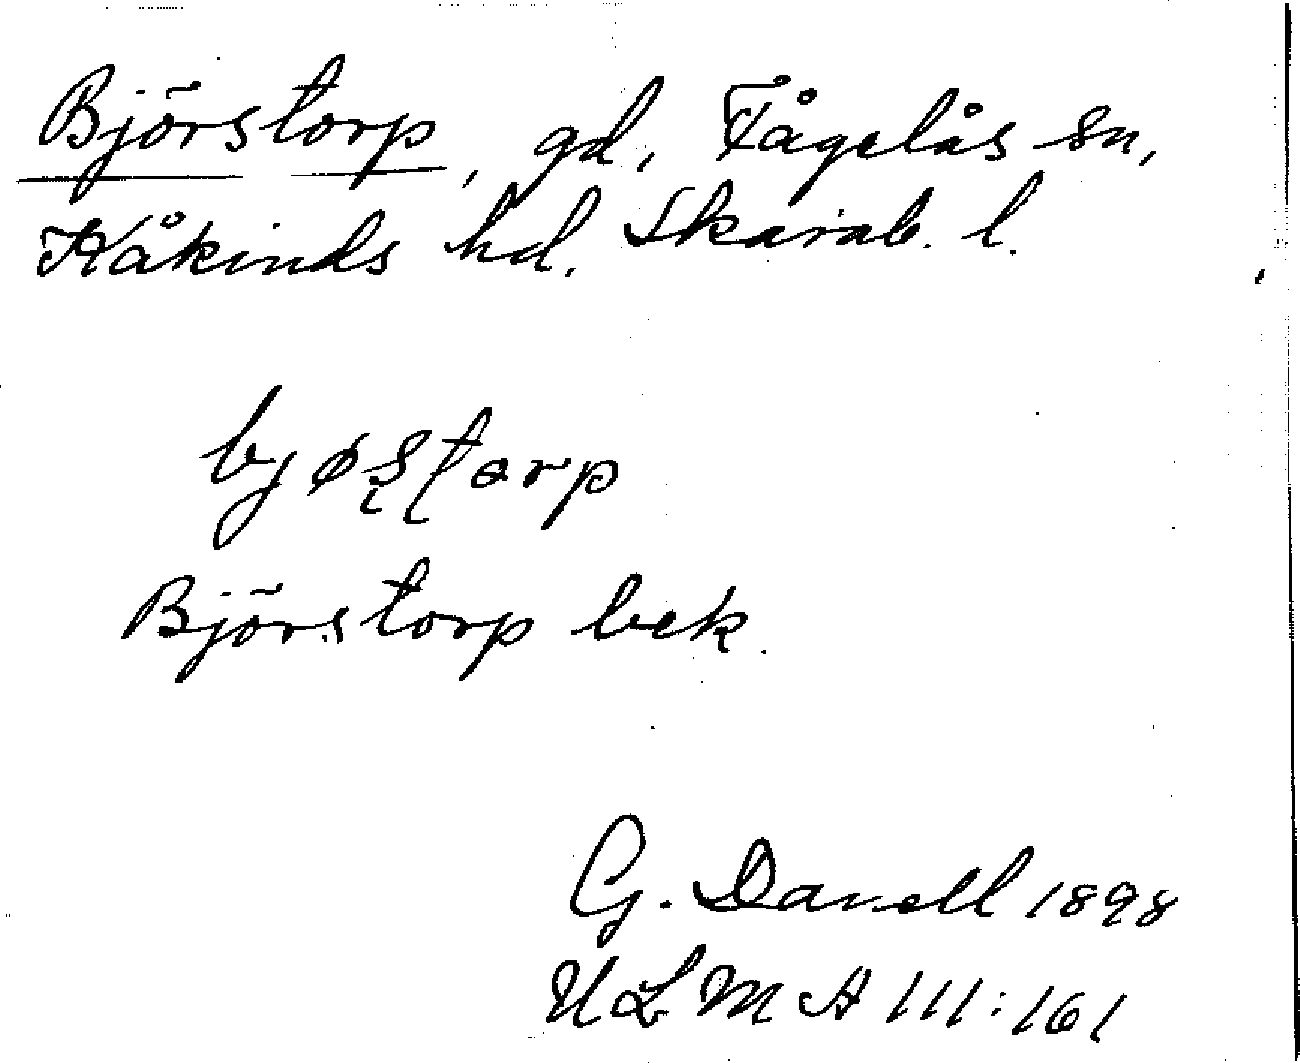 Björstorp, gd, Fågelås sn,
Kåkinds hd. Skarab. l.
bjøstorp
Björstorp bek.
G. Danell 1898
ULMA 111:161